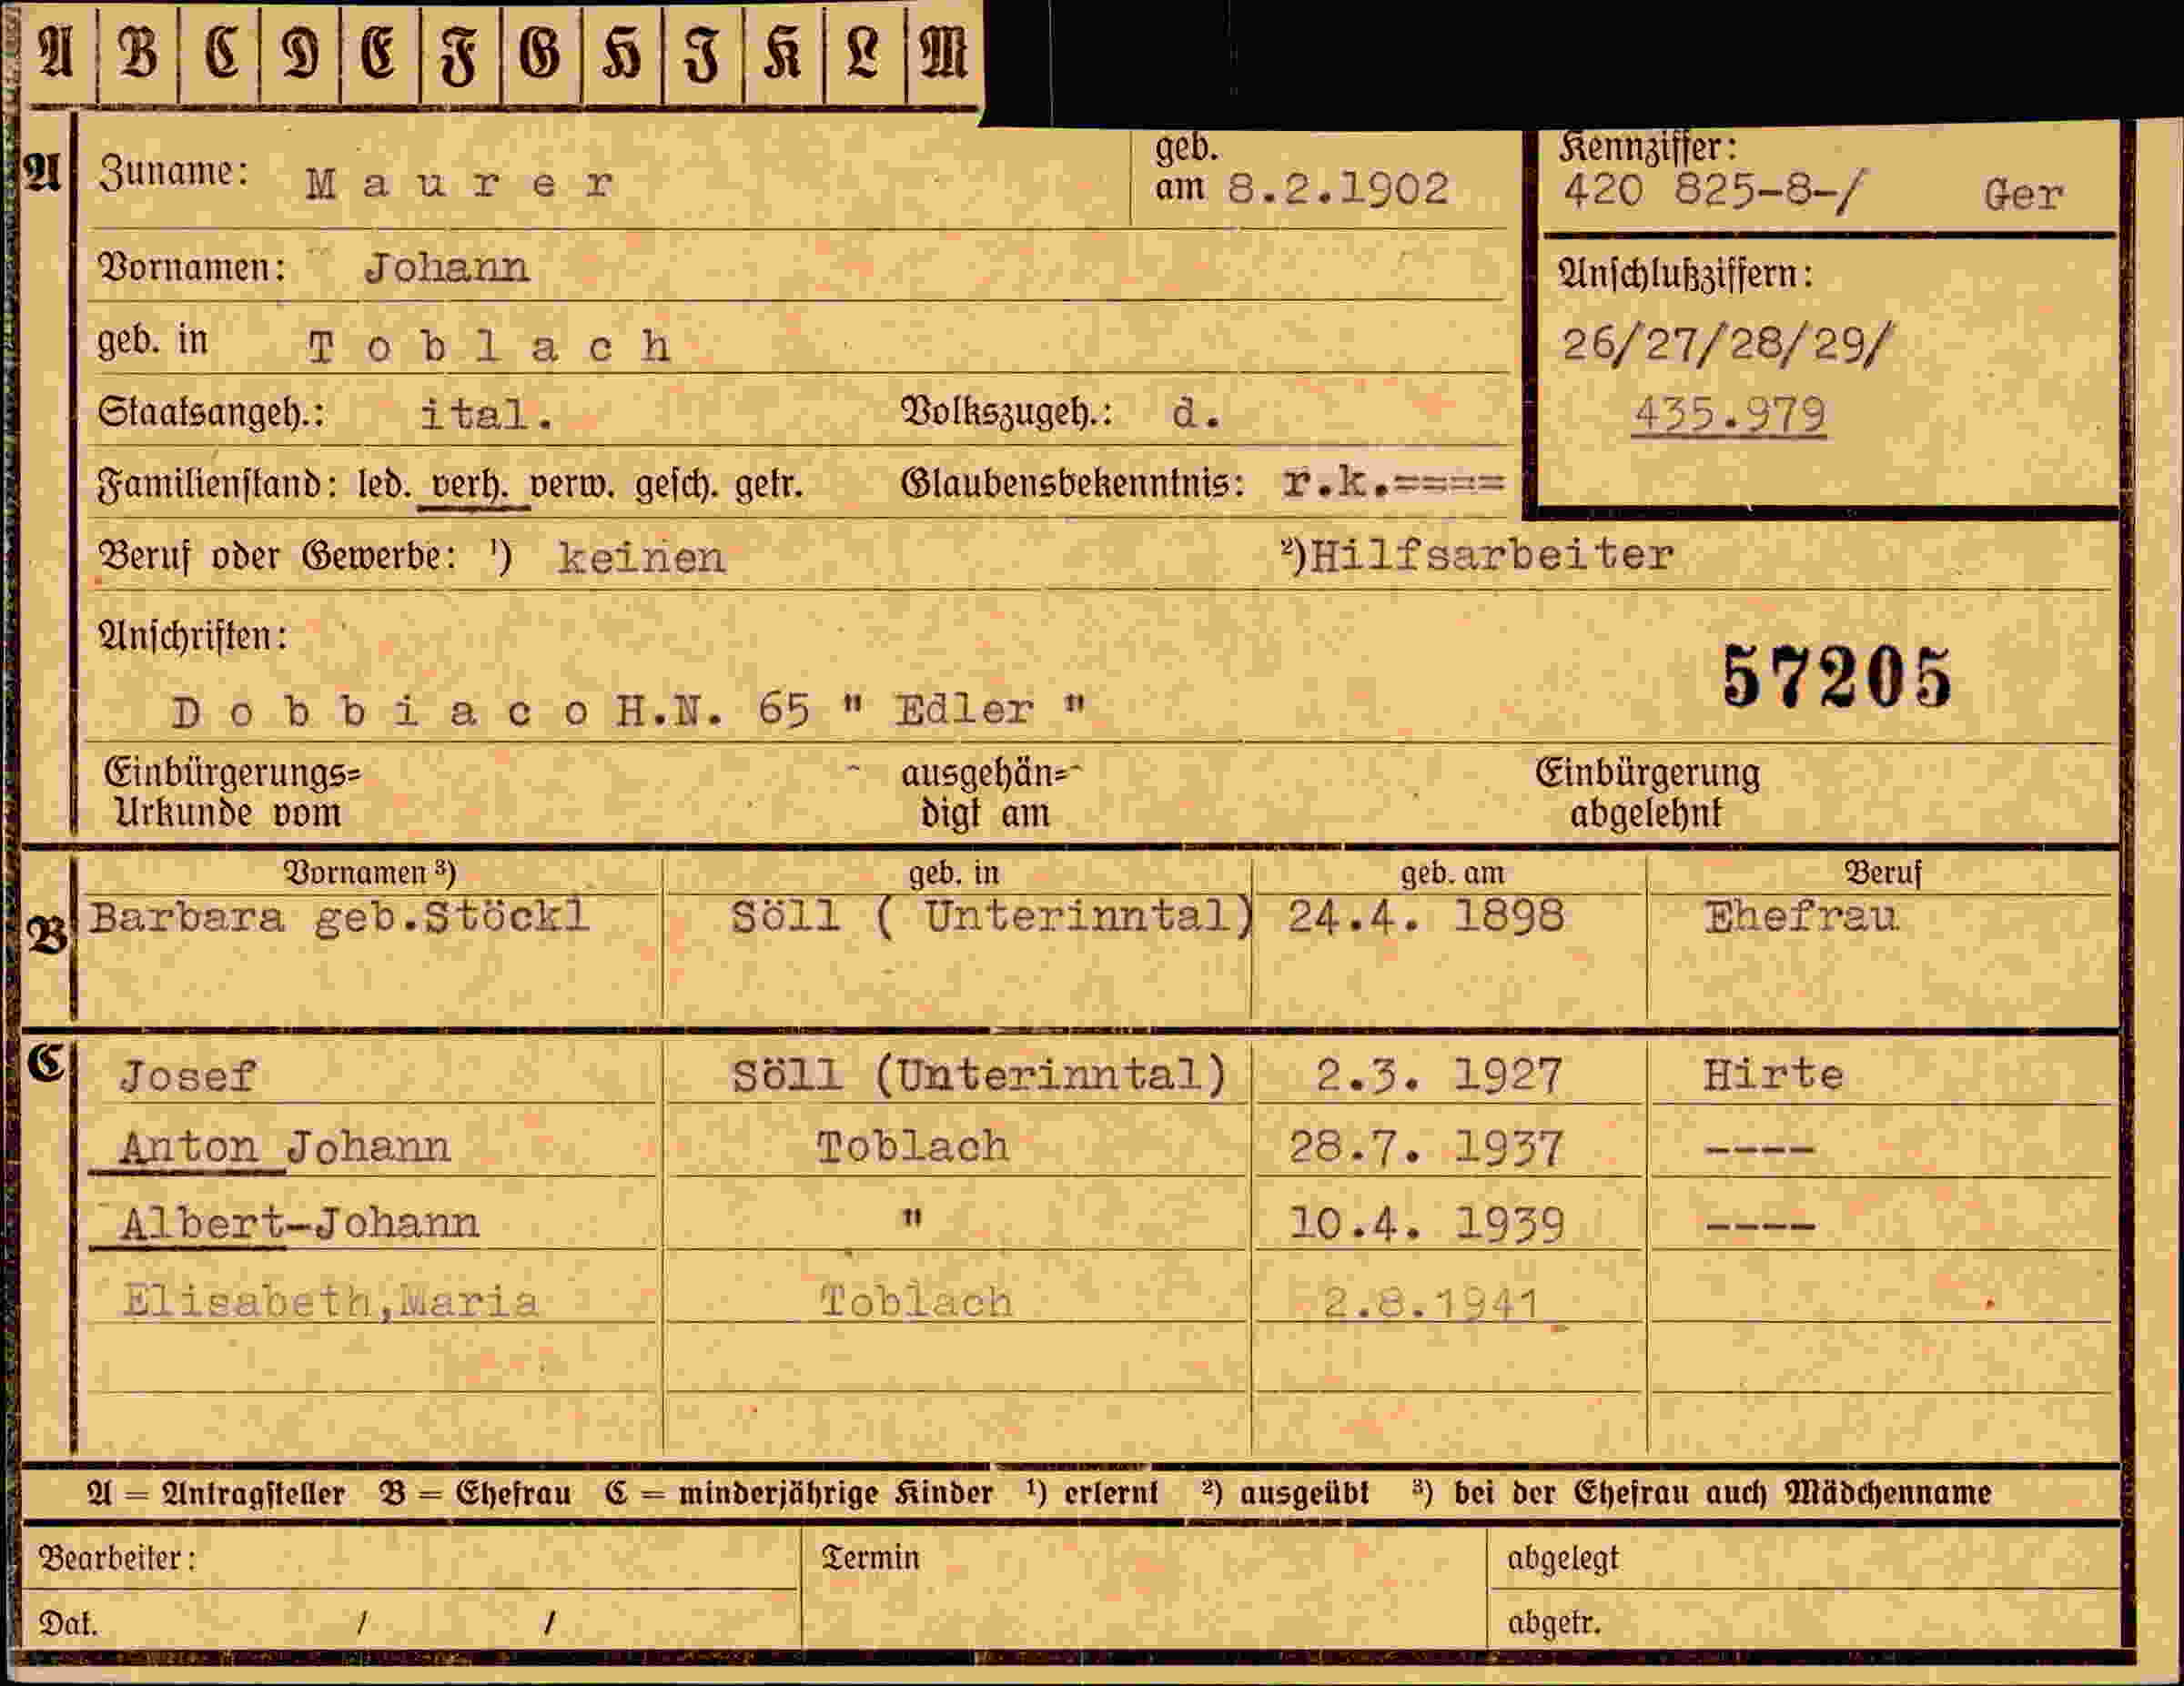 A B C D E F G H I K L M
A Zuname: Maurer geb. am 8.2.1902 Kennziffer: 420 825-8-/ Ger
Vornamen: Johann Anschlußziffern:
geb. in Toblach 26/27/28/29/
Staatsangeh.: ital. Volkszugeh.: d. 435.979
Familienstand: led. verh. verw. gesch. getr. Glaubensbekenntnis: r.k.====
Beruf oder Gewerbe: ¹) keinen ²)Hilfsarbeiter
Anschriften:
57205
Dobbiaco H.N. 65 " Edler "
Einbürgerungs= ausgehän= Einbürgerung
Urkunde vom digt am abgelehnt
Vornamen ³) geb. in geb. am Beruf
B Barbara geb.Stöckl Söll ( Unterinntal) 24.4. 1898 Ehefrau
C Josef Söll (Unterinntal) 2.3. 1927 Hirte
Anton Johann Toblach 28.7. 1937 ----
Albert-Johann " 10.4. 1939 ----
Elisabeth,Maria Toblach 2.8.1941
A = Antragsteller B = Ehefrau C = minderjährige Kinder ¹) erlernt ²) ausgeübt ³) bei der Ehefrau auch Mädchenname
Bearbeiter: Termin abgelegt
Dat. / / abgetr.